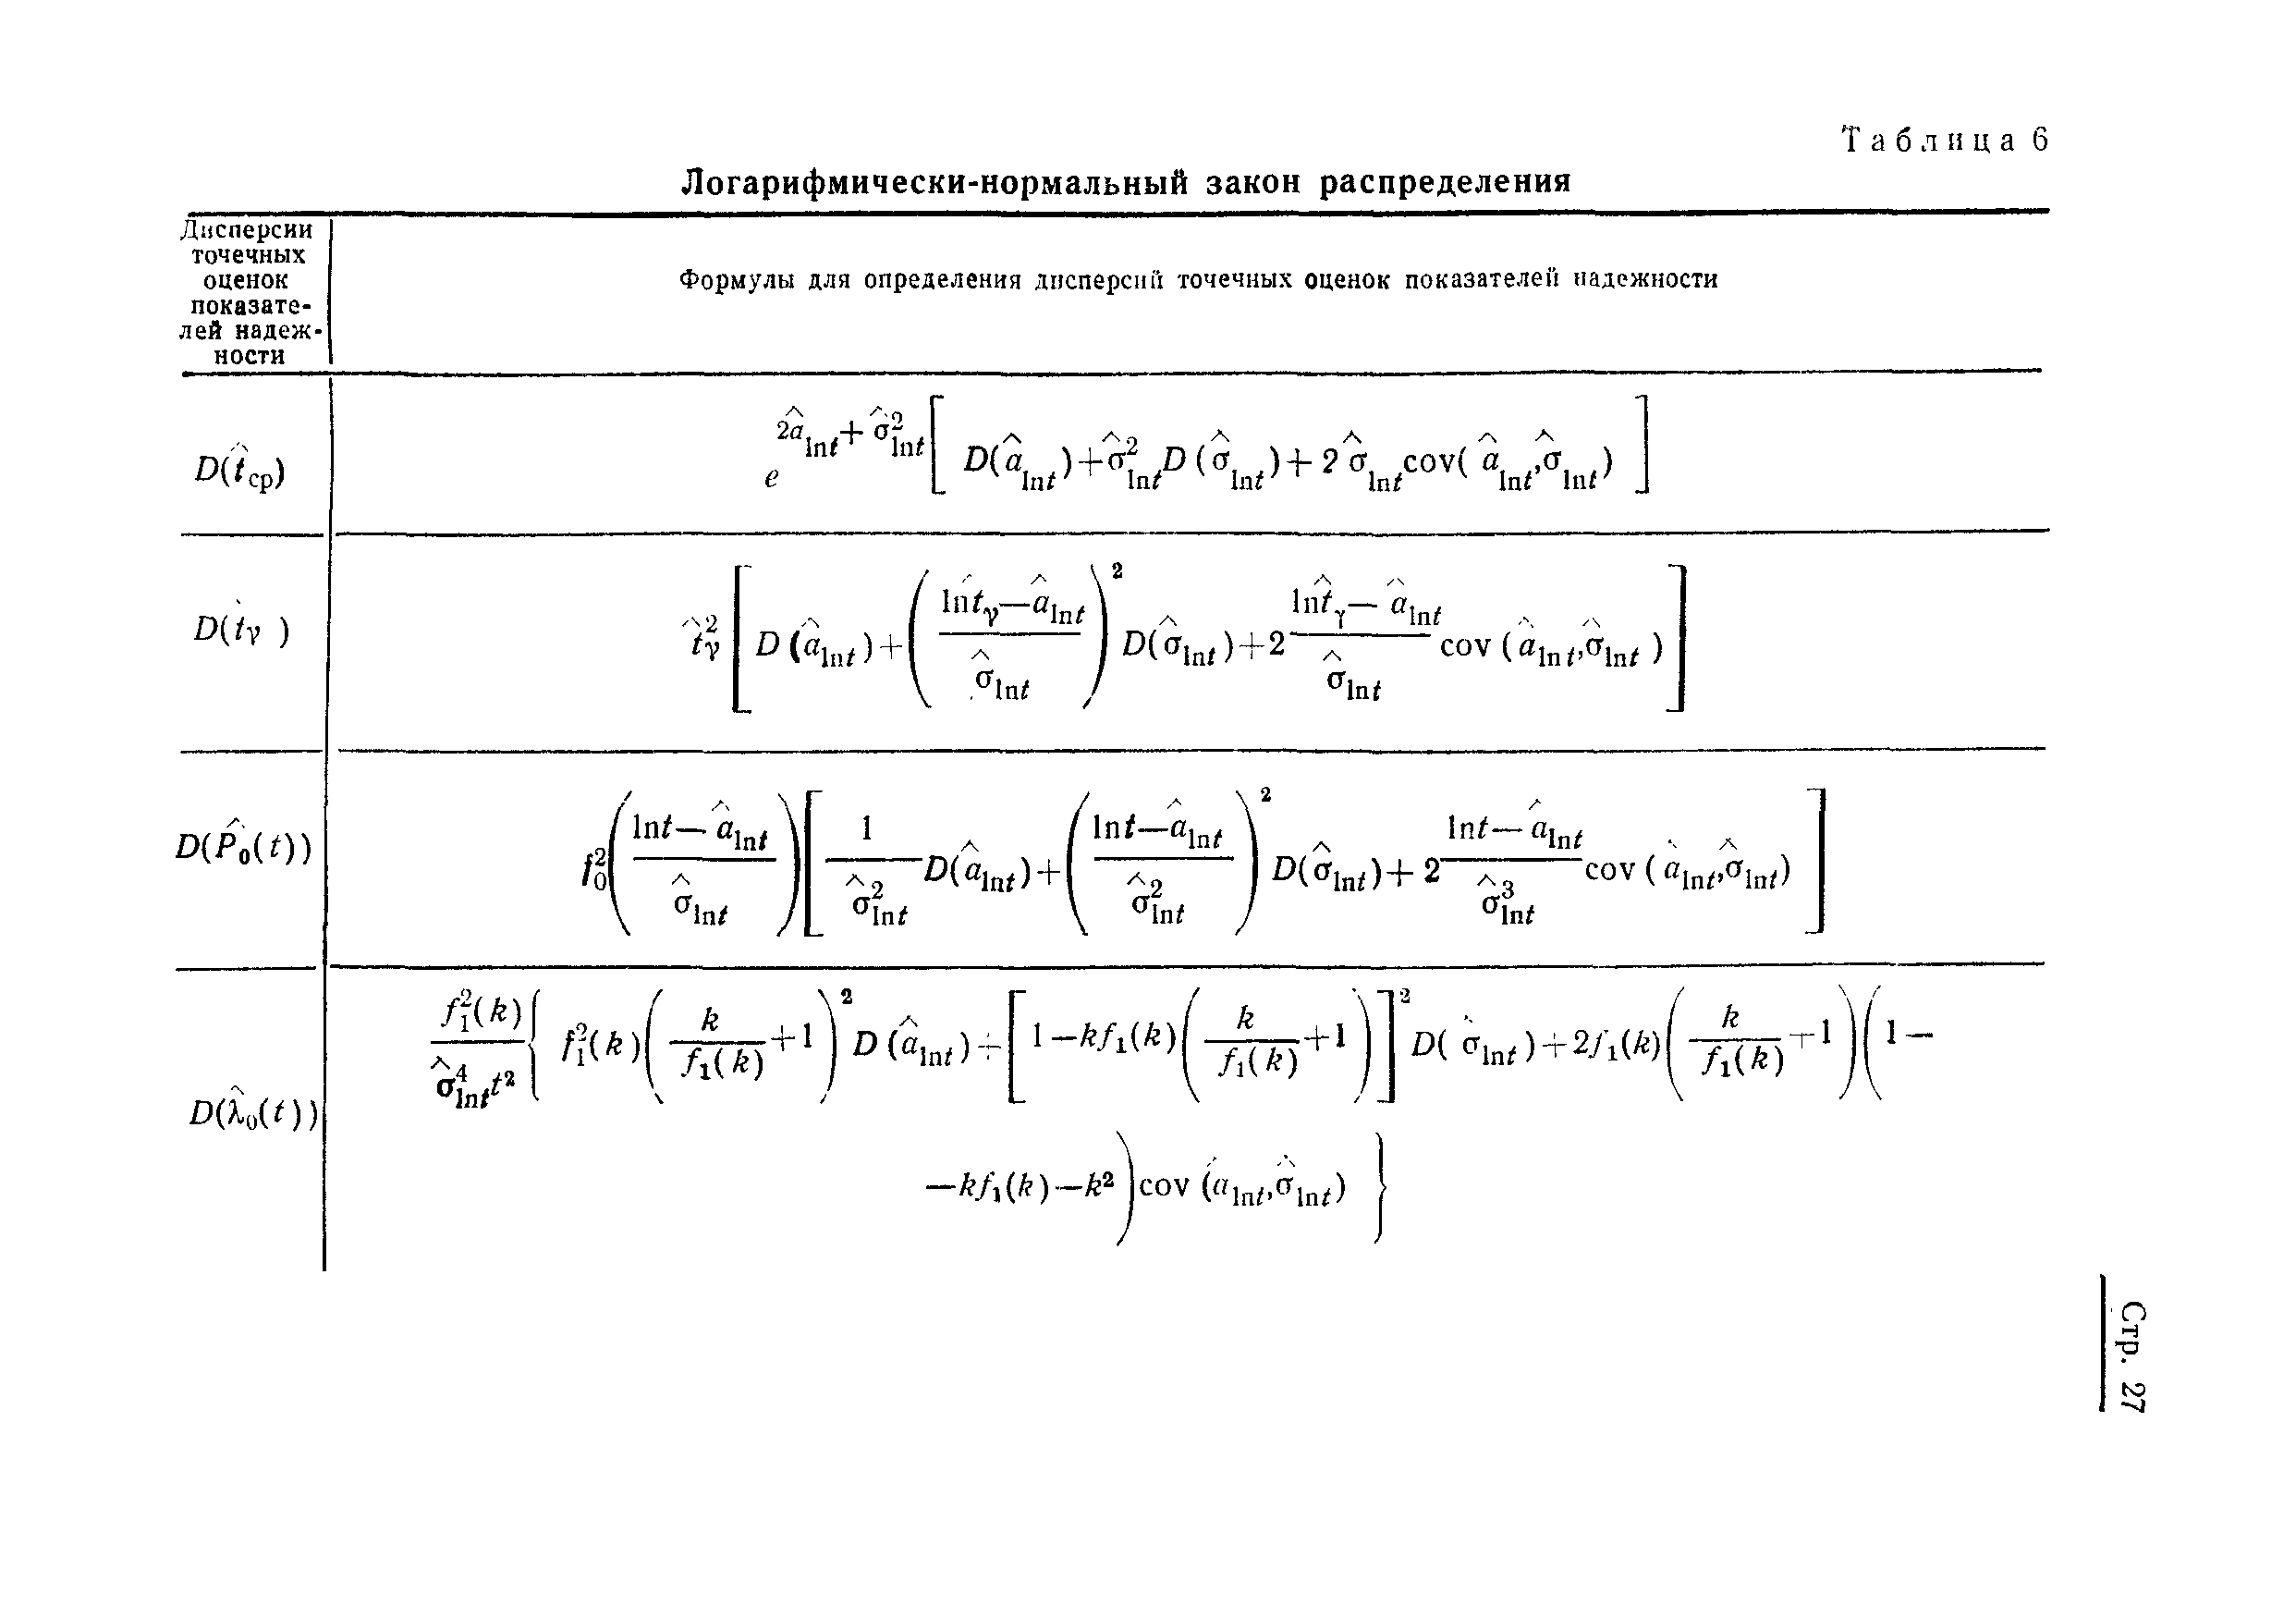 Таблица 6
Логарифмически-нормальный закон распределения
Дисперсии
точечных
оценок
показате-
лей надеж-
ности
Формулы для определения дисперсий точечных оценок показателей надежности
D(t̂ср)
e^{2â_{lnt}+σ̂²_{lnt}} [ D(â_{lnt})+σ̂²_{lnt}D(σ̂_{lnt})+2σ̂_{lnt}cov(â_{lnt},σ̂_{lnt}) ]
D(t̂γ)
t̂²γ [ D(â_{lnt})+( (ln t̂γ—â_{lnt})/σ̂_{lnt} )² D(σ̂_{lnt})+2 (ln t̂γ—â_{lnt})/σ̂_{lnt} cov(â_{lnt},σ̂_{lnt}) ]
D(P̂₀(t))
f₀²( (lnt—â_{lnt})/σ̂_{lnt} ) [ 1/σ̂²_{lnt} D(â_{lnt})+( (lnt—â_{lnt})/σ̂²_{lnt} )² D(σ̂_{lnt})+2 (lnt—â_{lnt})/σ̂³_{lnt} cov(â_{lnt},σ̂_{lnt}) ]
D(λ̂₀(t))
f₁²(k)/(σ̂⁴_{lnt}t²) { f₁²(k)( k/f₁(k) +1 )² D(â_{lnt})+[ 1—kf₁(k)( k/f₁(k) +1 ) ]² D(σ̂_{lnt})+2f₁(k)( k/f₁(k) +1 )( 1—
—kf₁(k)—k² )cov(â_{lnt},σ̂_{lnt}) }
Стр. 27